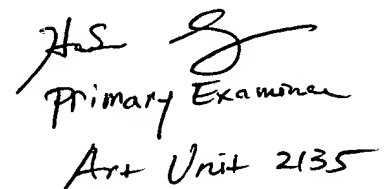 Primary Examiner
Art Unit 2135